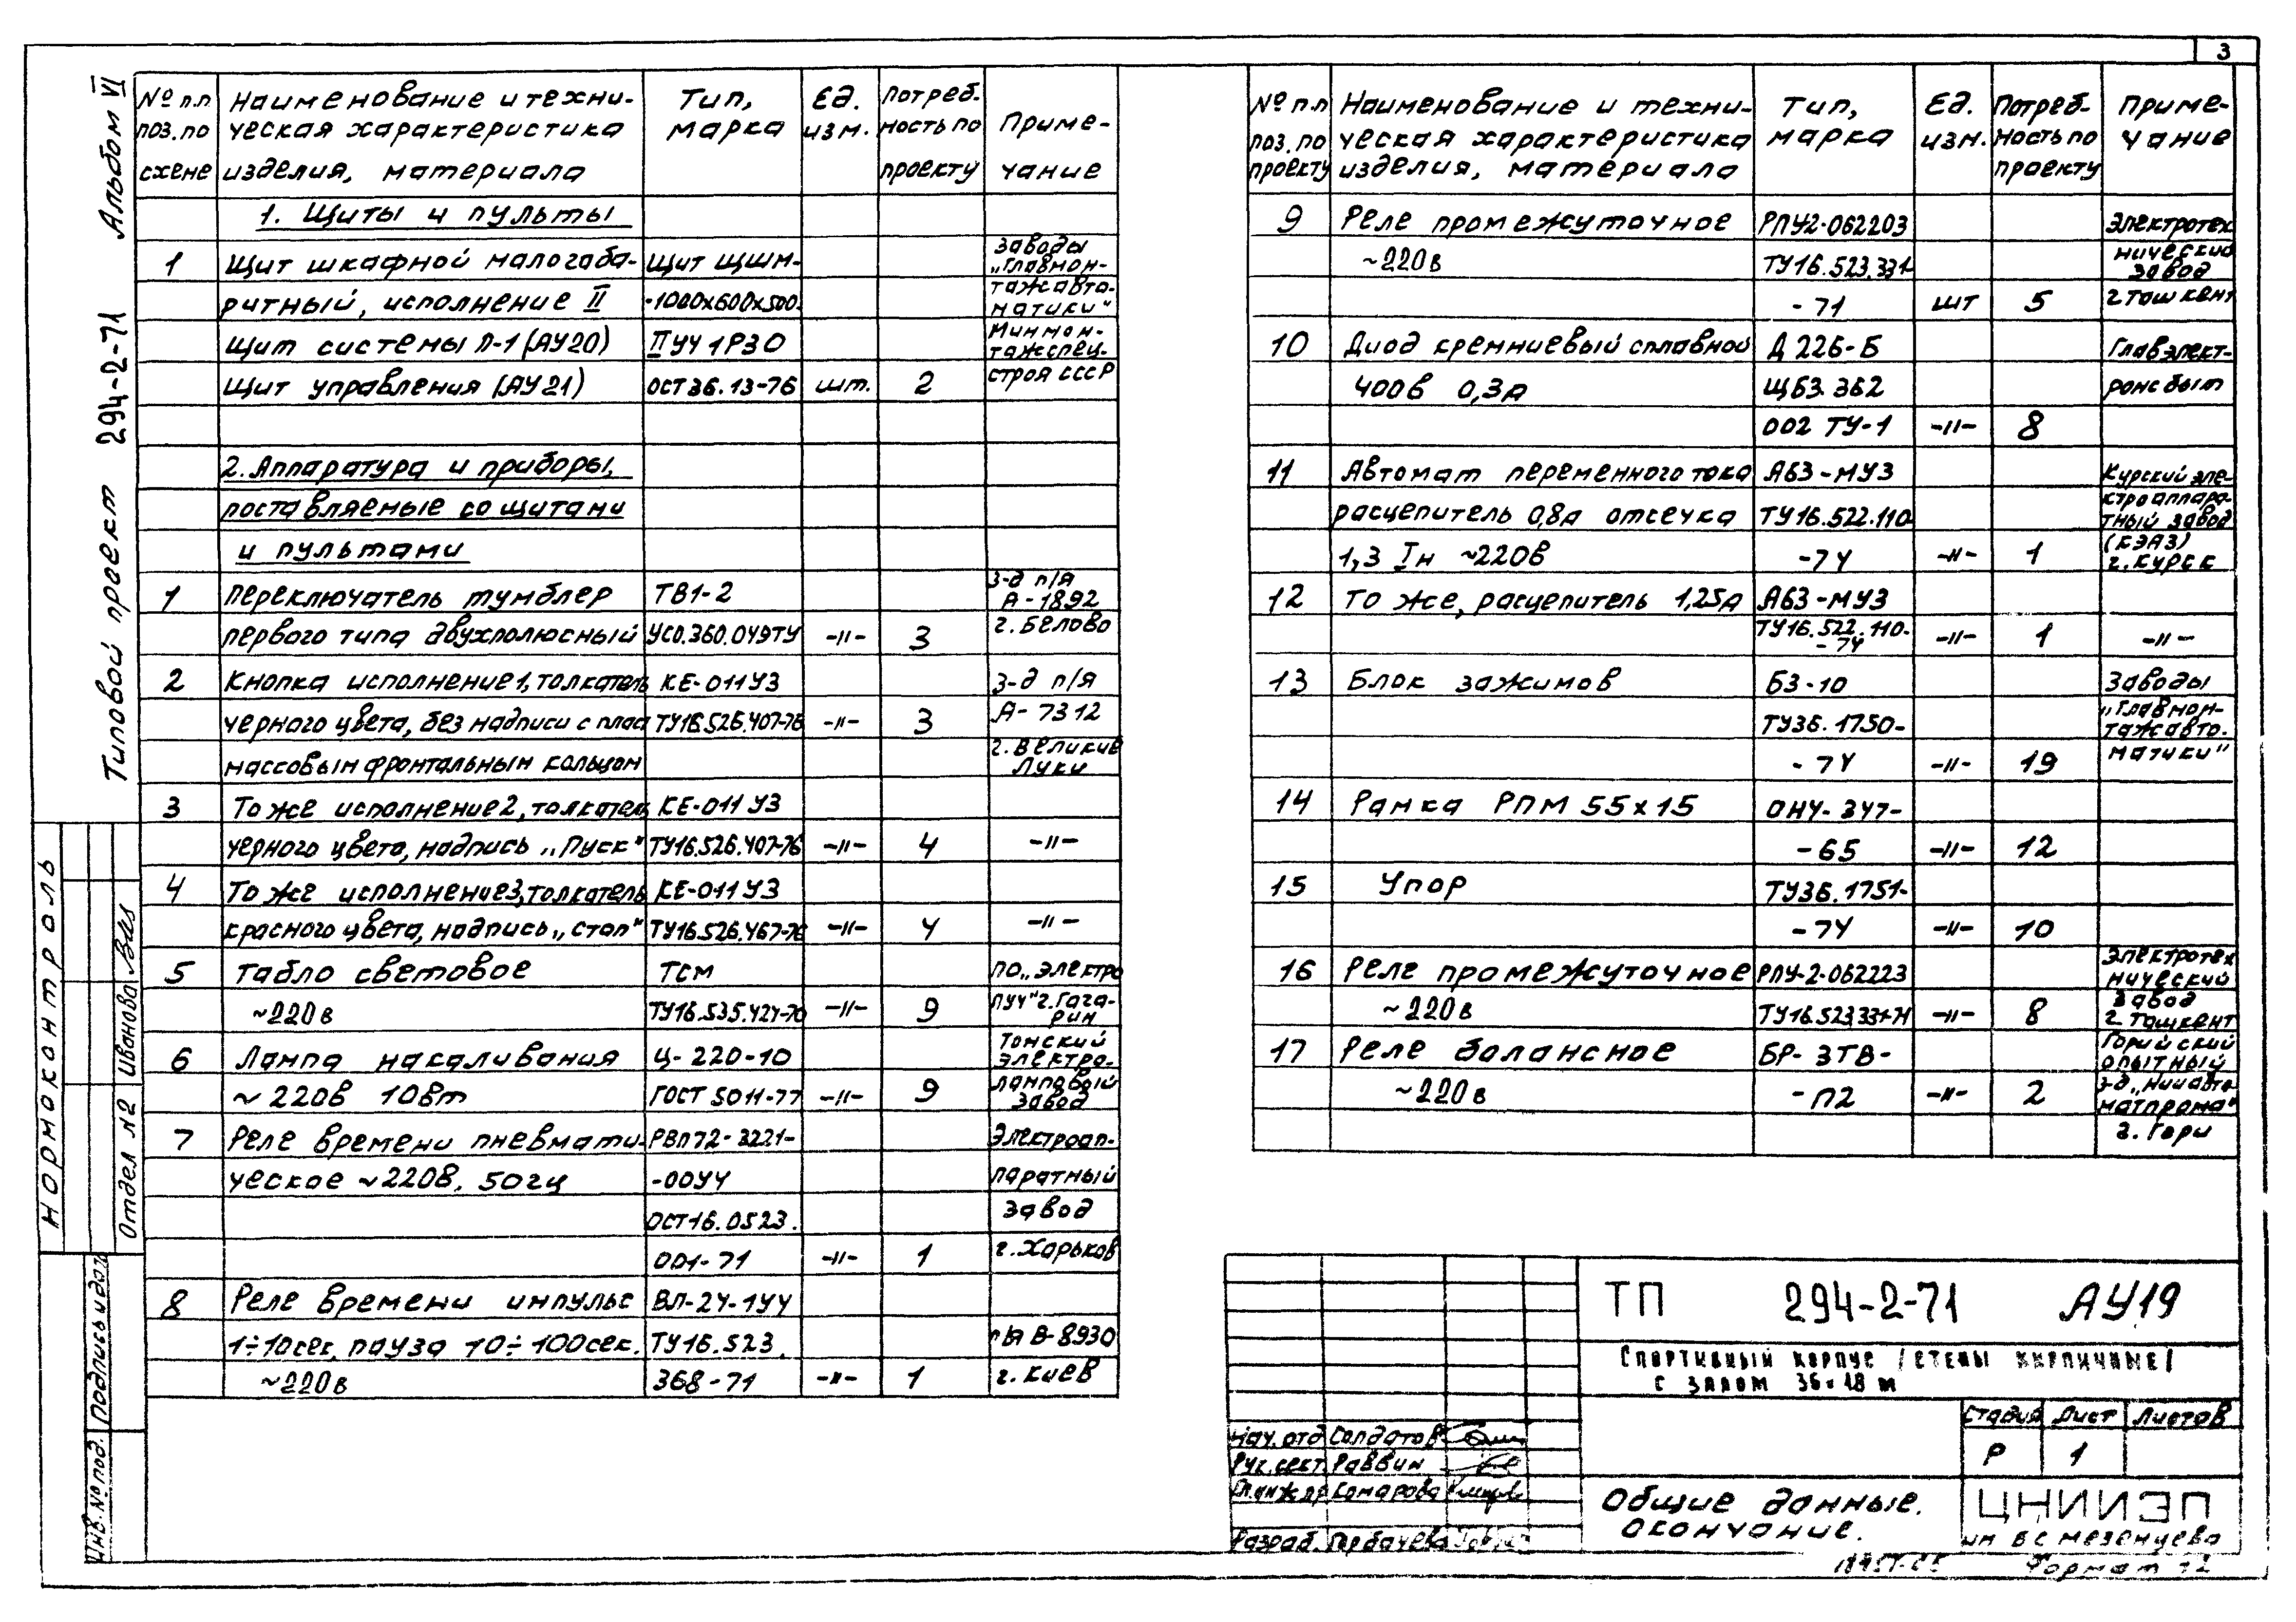 3
Типовой проект 294-2-71 Альбом VI
№ п.п Наименование и техни- Тип, Ед. Потреб- Приме-
поз. по ческая характеристика марка изм. ность по чание
схеме изделия, материала проекту
1. Щиты и пульты
1 Щит шкафной малогаба- Щит ЩШМ- Заводы „Главмон-
ритный, исполнение II -1000х600х500 тажавто- матики"
Щит системы П-1 (АУ20) IIУЧ 1Р30 Минмон- тажспец-
Щит управления (АУ21) ОСТ36.13-76 шт. 2 строя СССР
2. Аппаратура и приборы,
поставляемые со щитами
и пультами
1 Переключатель тумблер ТВ1-2 З-д п/я А-1892
первого типа двухполюсный УСО.360.049ТУ -"- 3 г. Белово
2 Кнопка исполнение 1, толкатель КЕ-011У3 З-д п/я
черного цвета, без надписи с плас ТУ16.526.407-76 -"- 3 А-7312
массовым фронтальным кольцом г. Великие Луки
3 То же исполнение 2, толкатель КЕ-011У3
черного цвета, надпись „Пуск" ТУ16.526.407-76 -"- 4 -"-
4 То же исполнение 3, толкатель КЕ-011У3
красного цвета, надпись „стоп" ТУ16.526.467-76 -"- 4 -"-
5 Табло световое ТСМ ПО „Электро
~220в ТУ16.535.424-70 -"- 9 луч" г. Гага- рин
6 Лампа накаливания Ц-220-10 Томский электро-
~220в 10вт ГОСТ 5011-77 -"- 9 ламповый завод
7 Реле времени пневмати- РВП72-3221- Электроап-
ческое ~220в, 50гц -00У4 паратный
ОСТ16.0523. завод
001-71 -"- 1 г. Харьков
8 Реле времени импульс ВЛ-24-1У4
1÷10сек, пауза 10÷100сек. ТУ16.523. п/я В-8930
~220в 368-71 -"- 1 г. Киев
№ п.п Наименование и техни- Тип, Ед. Потреб- Приме-
поз. по ческая характеристика марка изм. ность по чание
проекту изделия, материала проекту
9 Реле промежуточное РПУ2-062203 Электротех
~220в ТУ16.523.331- нический завод
-71 шт 5 г Ташкент
10 Диод кремниевый сплавной Д 226-Б Главэлект-
400в 0,3А ЩБ3.362 ронсбыт
002 ТУ-1 -"- 8
11 Автомат переменного тока А63-МУ3 Курский эле-
расцепитель 0,8а отсечка ТУ16.522.110- ктроаппара- тный завод
1,3 Iн ~220в -74 -"- 1 (КЭАЗ) г. Курск
12 То же, расцепитель 1,25А А63-МУ3
ТУ16.522.110- -74 -"- 1 -"-
13 Блок зажимов БЗ-10 Заводы
ТУ36.1750- „Главмон- тажавто-
-74 -"- 19 матики"
14 Рамка РПМ 55х15 ОНУ-347-
-65 -"- 12
15 Упор ТУ36.1751-
-74 -"- 10
16 Реле промежуточное РПУ-2-062223 Электротех нический
~220в ТУ16.523.331-71 -"- 8 завод г. Ташкент
17 Реле балансное БР-3ТВ- Горийский опытный
~220в -П2 -"- 2 з-д „Ниавто- матпрома"
г. Гори
Нормоконтроль
Отдел №2 Иванова
Инв. № под. Подпись и дата
ТП 294-2-71 АУ19
Спортивный корпус /стены кирпичные/
с залом 36х18 м
Стадия Лист Листов
Р 1
Нач. отд Солдатов
Рук. сект. Раввин
Гл. инж. пр Комарова
Разраб. Горбачева
Общие данные.
Окончание.
ЦНИИЭП
им Б С Мезенцева
Формат 12